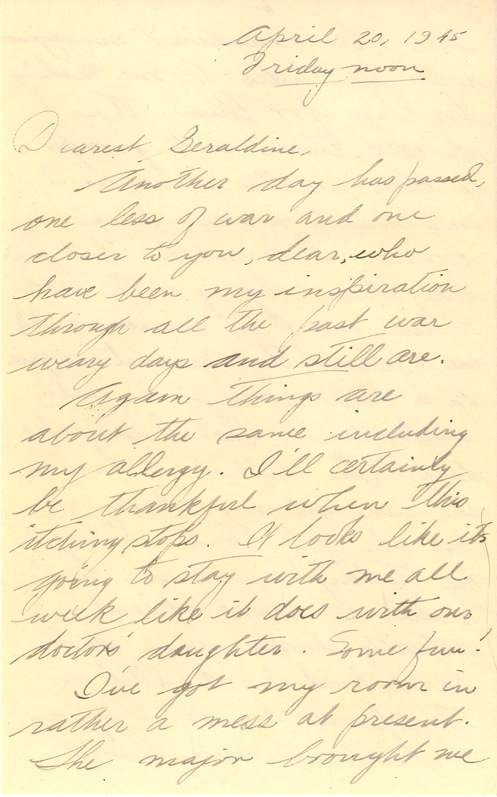 April 20, 1945
Friday noon
Dearest Geraldine,
Another day has passed,
one less of war and one
closer to you, dear, who
have been my inspiration
through all the past war
weary days and still are.
Again things are
about the same including
my allergy. I'll certainly
be thankful when this
itching stops. It looks like it's
going to stay with me all
week like it does with our
doctors' daughter. Some fun!
I've got my room in
rather a mess at present.
The major brought me